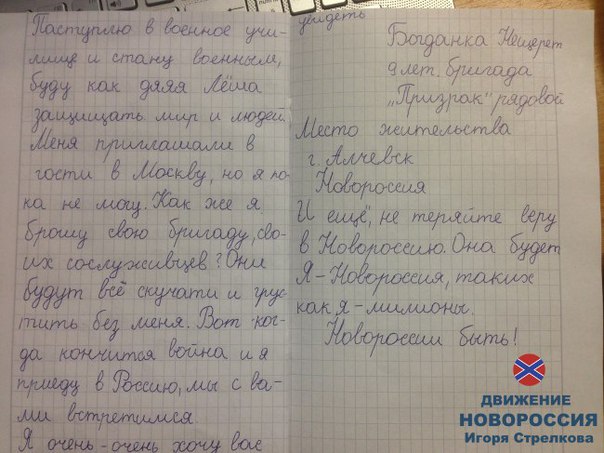 Поступлю в военное учи-
лище и стану военным,
буду как дядя Лёша
защищать мир и людей.
Меня приглашали в
гости в Москву, но я по-
ка не могу. Как же я
брошу свою бригаду, сво-
их сослуживцев? Они
будут всё скучати и грус-
тить без меня. Вот ког-
да кончится война и я
приеду в Россию, мы с ва-
ми встретимся.
Я очень-очень хочу вас
увидеть
Богданка Нещерет
9 лет, бригада
„Призрак“ рядовой
Место жительства
г. Алчевск
Новороссия
И ещё, не теряйте веру
в Новороссию. Она будет
Я-Новороссия, таких
как я-милионы.
Новороссии быть!
ДВИЖЕНИЕ
НОВОРОССИЯ
Игоря Стрелкова